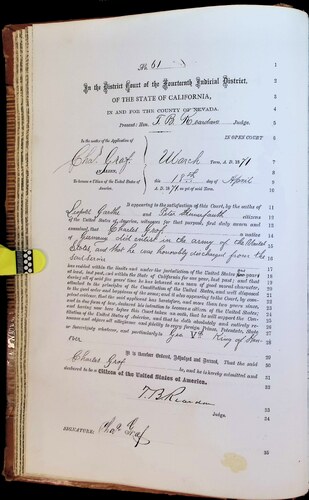 No. 61
In the District Court of the Fourteenth Judicial District,
OF THE STATE OF CALIFORNIA,
IN AND FOR THE COUNTY OF NEVADA.
Present: Hon. T. B. Reardan Judge.
IN OPEN COURT
In the matter of the Application of
Chas. Graf
To become a Citizen of the United States of America.
March Term, A. D. 1871
this 18th day of April
A. D. 1871
It appearing to the satisfaction of this Court, by the oaths of
Leopold Garthe and Peter citizens
of the United States of America, witnesses for that purpose, first duly sworn and
examined, that Charles Graf a native
of Germany did enlist in the army of the United
States, and that he was honorably discharged from the
said service
resided within the limits and under the jurisdiction of the United States five years
at least, last past, and within the State of California for one year, last past; and that
during all of said five years' time he has behaved as a man of good moral character,
attached to the principles of the Constitution of the United States, and well disposed
to the good order and happiness of the same;
and having now here before this Court taken an oath that he will support the Constitution
of the United States of America, and that he doth absolutely and entirely renounce
and abjure all allegiance and fidelity to every foreign Prince, Potentate, State
or Sovereignty whatever, and particularly to Geo Vth King of Hanover
It is therefore Ordered, Adjudged and Decreed, That the said
Charles Graf
be, and he is hereby admitted and
declared to be a Citizen of the United States of America.
T. B. Reardan
Judge.
SIGNATURE: Chas Graf
1
2
3
4
5
6
7
8
9
10
11
12
13
14
15
16
17
18
19
20
21
22
23
24
25
26
27
28
29
30
31
32
33
34
35
36